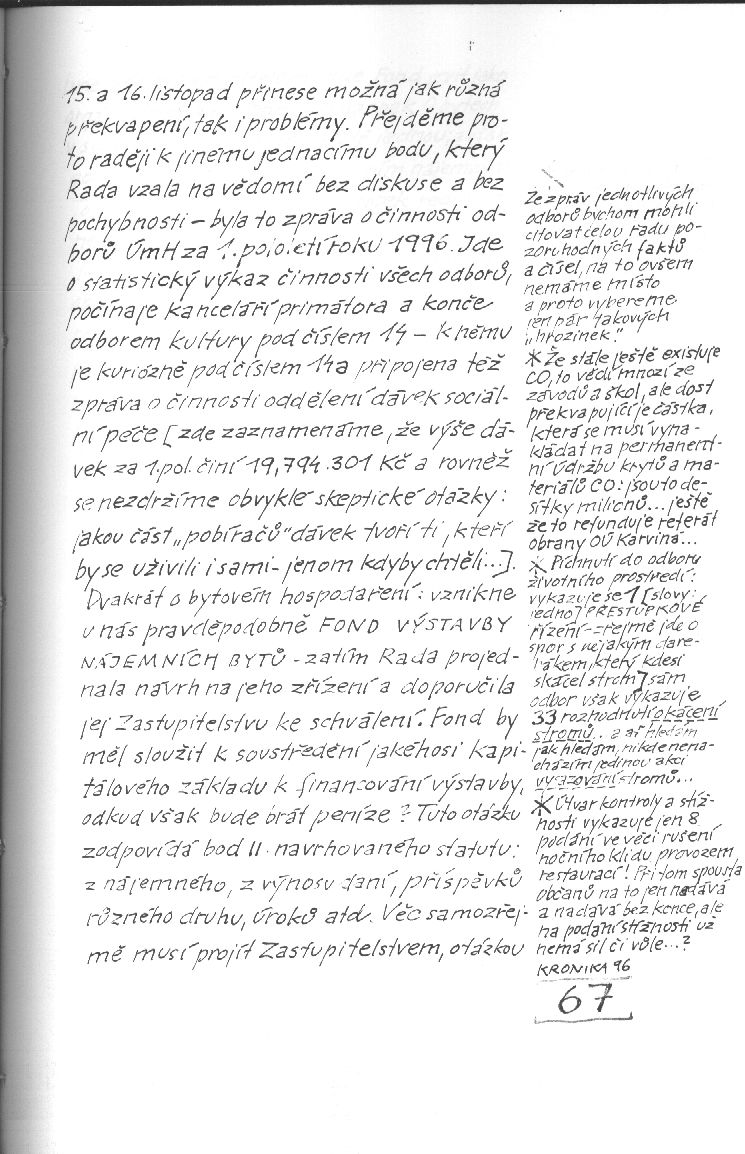 15. a 16. listopad přinese možná jak různá
překvapení, tak i problémy. Přejděme pro-
to raději k jinému jednacímu bodu, který
Rada vzala na vědomí bez diskuse a bez
pochybností – byla to zpráva o činnosti od-
borů ÚmH za 1. pololetí roku 1996. Jde
o statistický výkaz činnosti všech odborů,
počínaje kanceláří primátora a konče
odborem kultury pod číslem 14 – k němu
je kuriózně pod číslem 14a připojena též
zpráva o činnosti oddělení dávek sociál-
ní péče [zde zaznamenáme, že výše dá-
vek za 1.pol. činí 19,794.301 Kč a rovněž
se nezdržíme obvyklé skeptické otázky:
jakou část „pobíračů“ dávek tvoří ti, kteří
by se uživili i sami - jenom kdyby chtěli...].
Dvakrát o bytovém hospodaření: vznikne
u nás pravděpodobně FOND VÝSTAVBY
NÁJEMNÍCH BYTŮ - zatím Rada projed-
nala návrh na jeho zřízení a doporučila
jej Zastupitelstvu ke schválení. Fond by
měl sloužit k soustředění jakéhosi kapi-
tálového základu k financování výstavby,
odkud však bude brát peníze? Tuto otázku
zodpovídá bod II. navrhovaného statutu:
z nájemného, z výnosu daní, příspěvků
různého druhu, úroků atd. Věc samozřej-
mě musí projít Zastupitelstvem, otázkou
Ze zpráv jednotlivých
odborů bychom mohli
citovat celou řadu po-
zoruhodných faktů
a čísel, na to ovšem
nemáme místo
a proto vybereme
jen pár takových
„hrozinek.“
* Že stále ještě existuje
CO, to vědí mnozí ze
závodů a škol, ale dost
překvapující je částka,
která se musí vyna-
kládat na permanent-
ní údržbu krytů a ma-
teriálů CO: jsou to de-
sítky milionů... ještě
že to refunduje referát
obrany OÚ Karviná...
* Píchnutí do odboru
životního prostředí:
vykazuje se 1 [slovy:
jedno] PŘESTUPKOVÉ
řízení - zřejmě jde o
spor s nějakým dare-
bákem, který kdesi
skácel strom] sám
odbor však vykazuje
33 rozhodnutí o kácení
stromů... a ať hledám
jak hledám, nikde nena-
cházím jedinou akci
vysazování stromů...
* Útvar kontroly a stíž-
ností vykazuje jen 8
podání ve věci rušení
nočního klidu provozem
restaurací! Přitom spousta
občanů na to jen nadává
a nadává bez konce, ale
na podání stížnosti už
nemá sil či vůle...?
KRONIKA 96
67